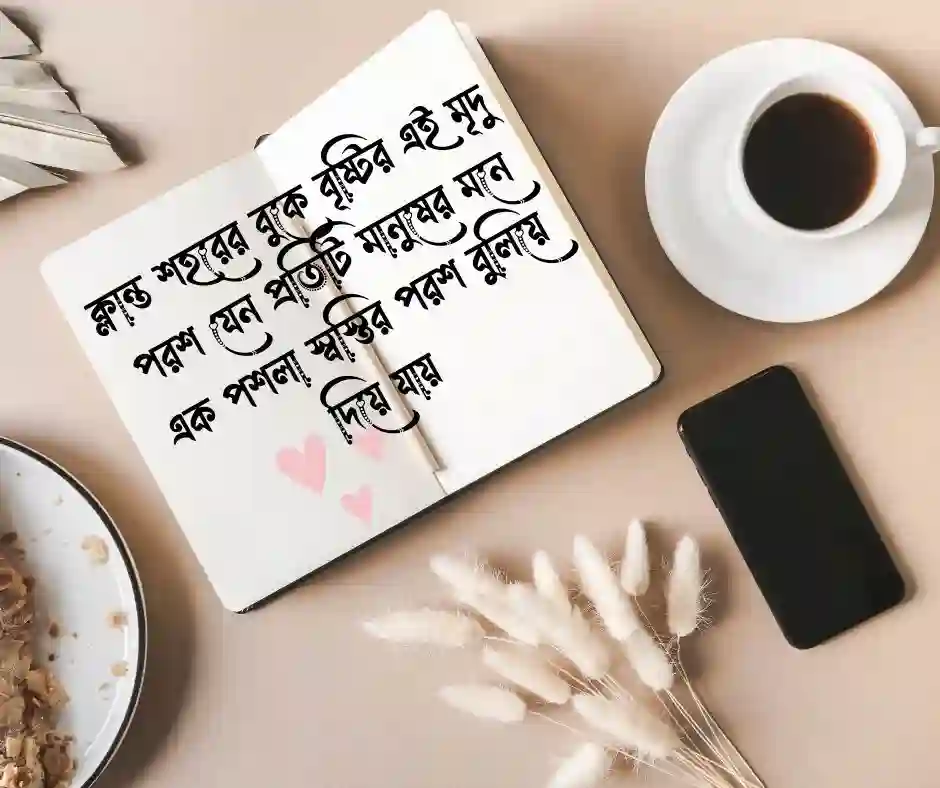 ক্লান্ত শহরের বুকে বৃষ্টির এই মৃদু
পরশ যেন প্রতিটি মানুষের মনে
এক পশলা স্বস্তির পরশ বুলিয়ে
দিয়ে যায়